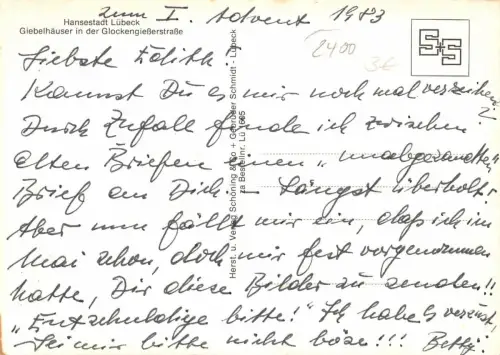 zum I. Advent 1983
Hansestadt Lübeck
Giebelhäuser in der Glockengießerstraße
2400
3€
S+S
Liebste Edith!
Kannst Du es mir noch mal verzeihen?
Durch Zufall finde ich zwischen
alten Briefen einen "unabgesandten"
Brief an Dich. – Längst überholt!
Aber nun fällt mir ein, daß ich im
Mai schon, doch mir fest vorgenommen
hatte, Dir diese Bilder zu senden!!
"Entschuldige bitte!" Ich habe es versäumt
Sei mir bitte nicht böse!!! Betty!
Herst. u. Verlag Schöning & Co + Gebrüder Schmidt - Lübeck
za Bestellnr. Lü 1665